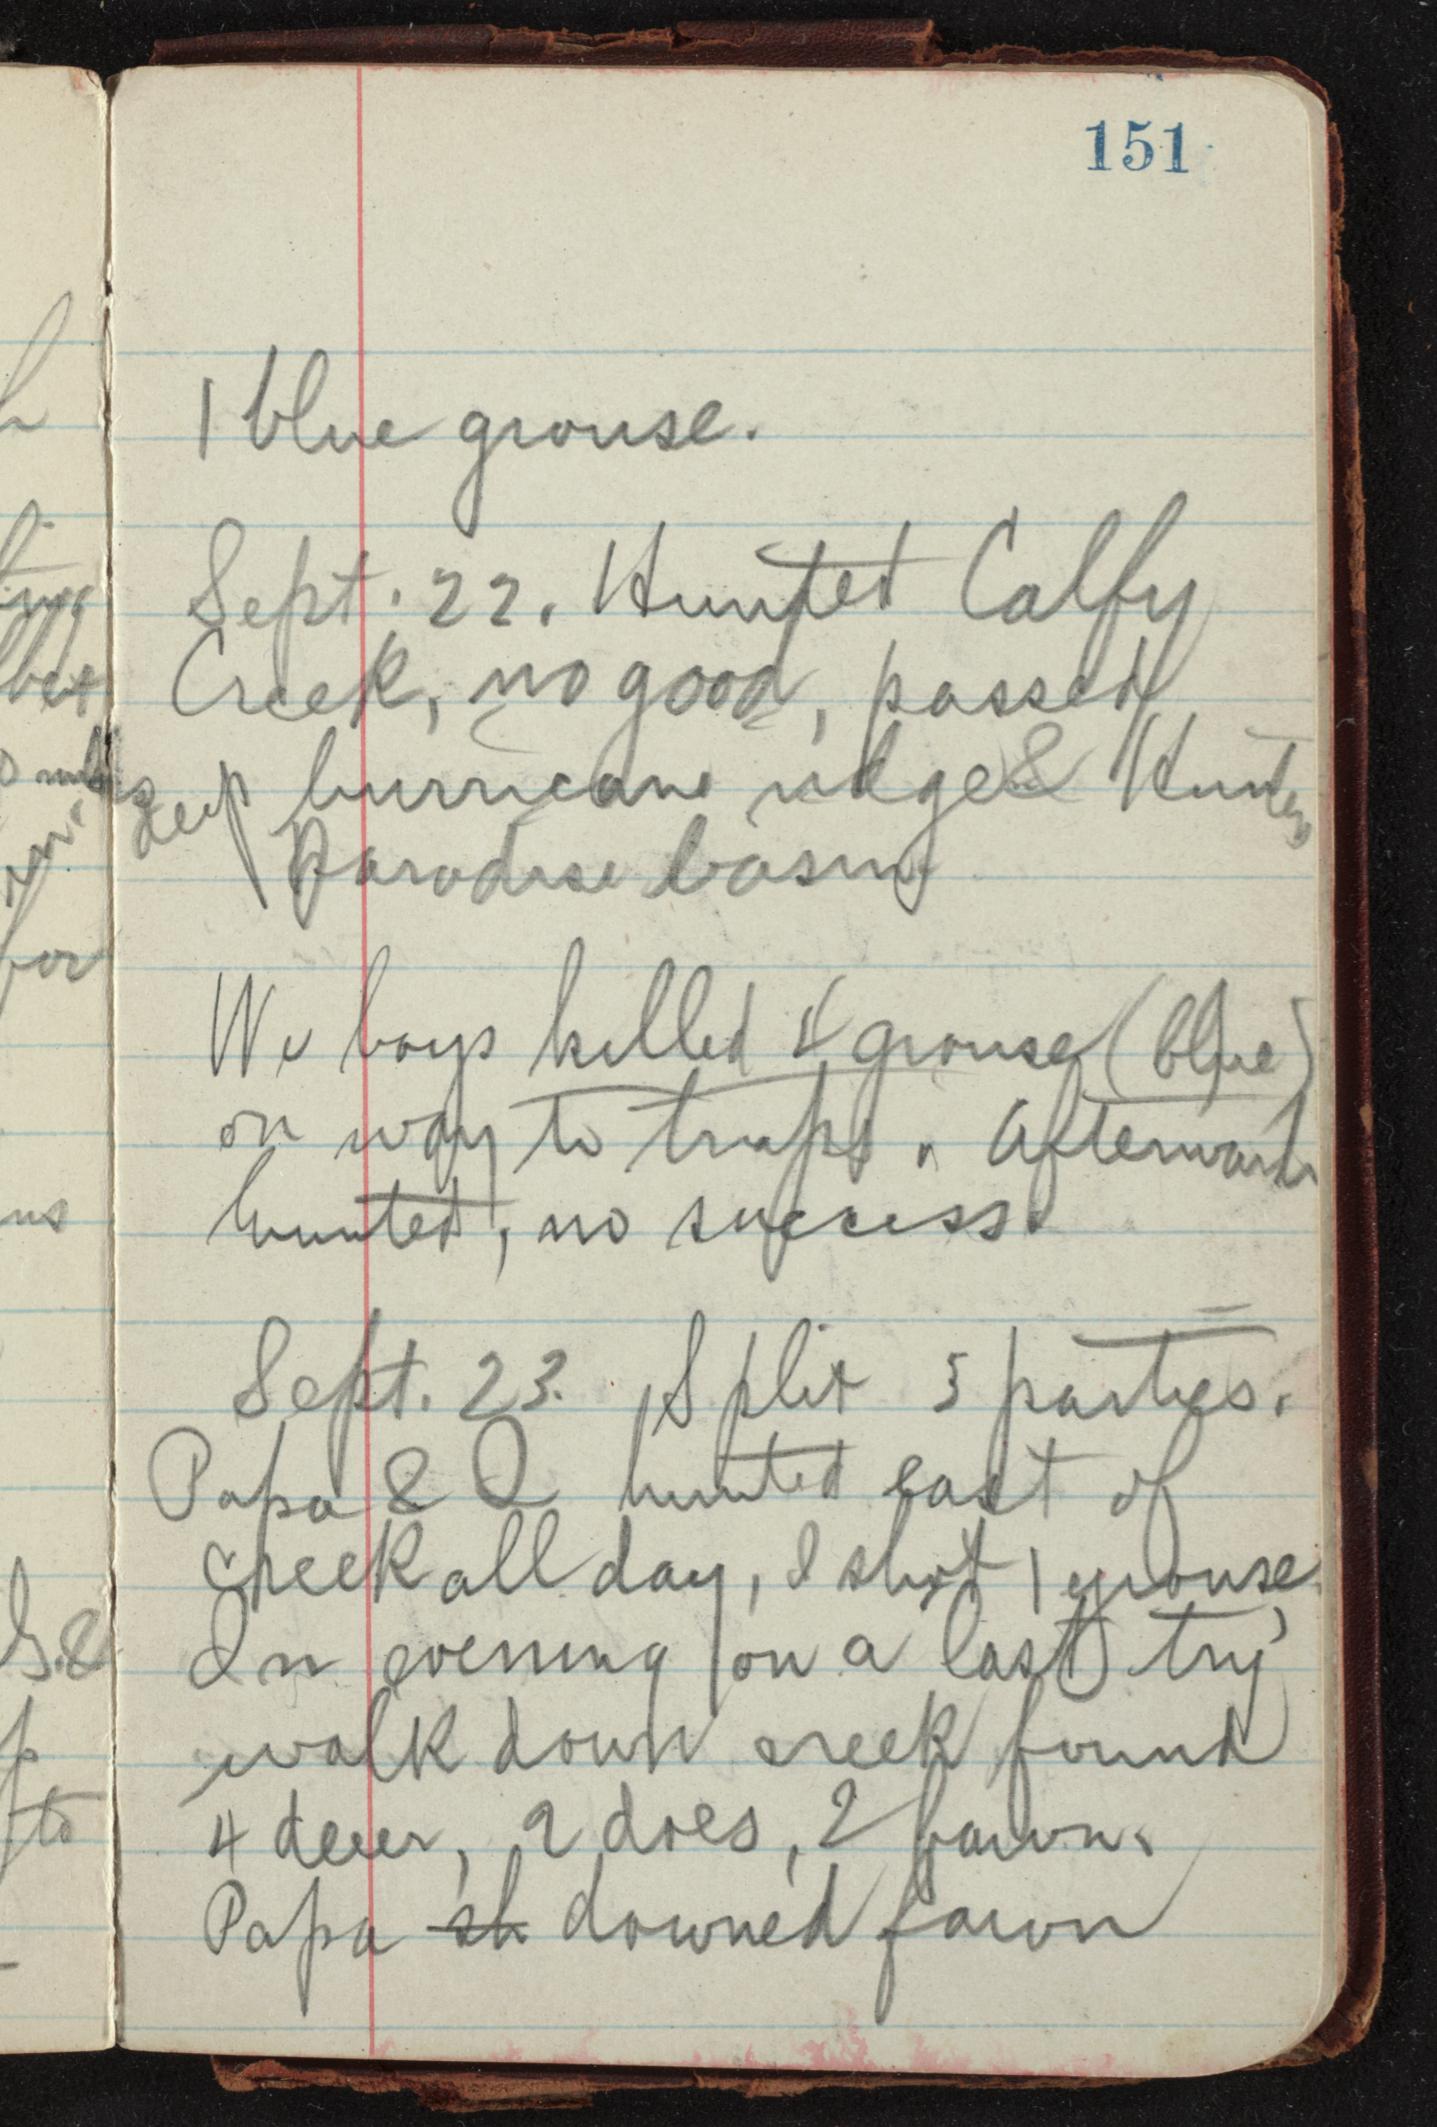 151
1 blue grouse.
Sept. 22. Hunted Calfy
Creek, no good, passed
deep hurricane ridge & Hunters
Paradise basin
We boys killed 4 grouse (blue)
on way to traps. Afterwards
hunted, no success.
Sept. 23. Split 3 parties.
Papa & O hunted east of
creek all day, I shot 1 grouse.
In evening on a last try
walk down creek found
4 deer, 2 does, 2 fawn.
Papa sh downed fawn
for
to